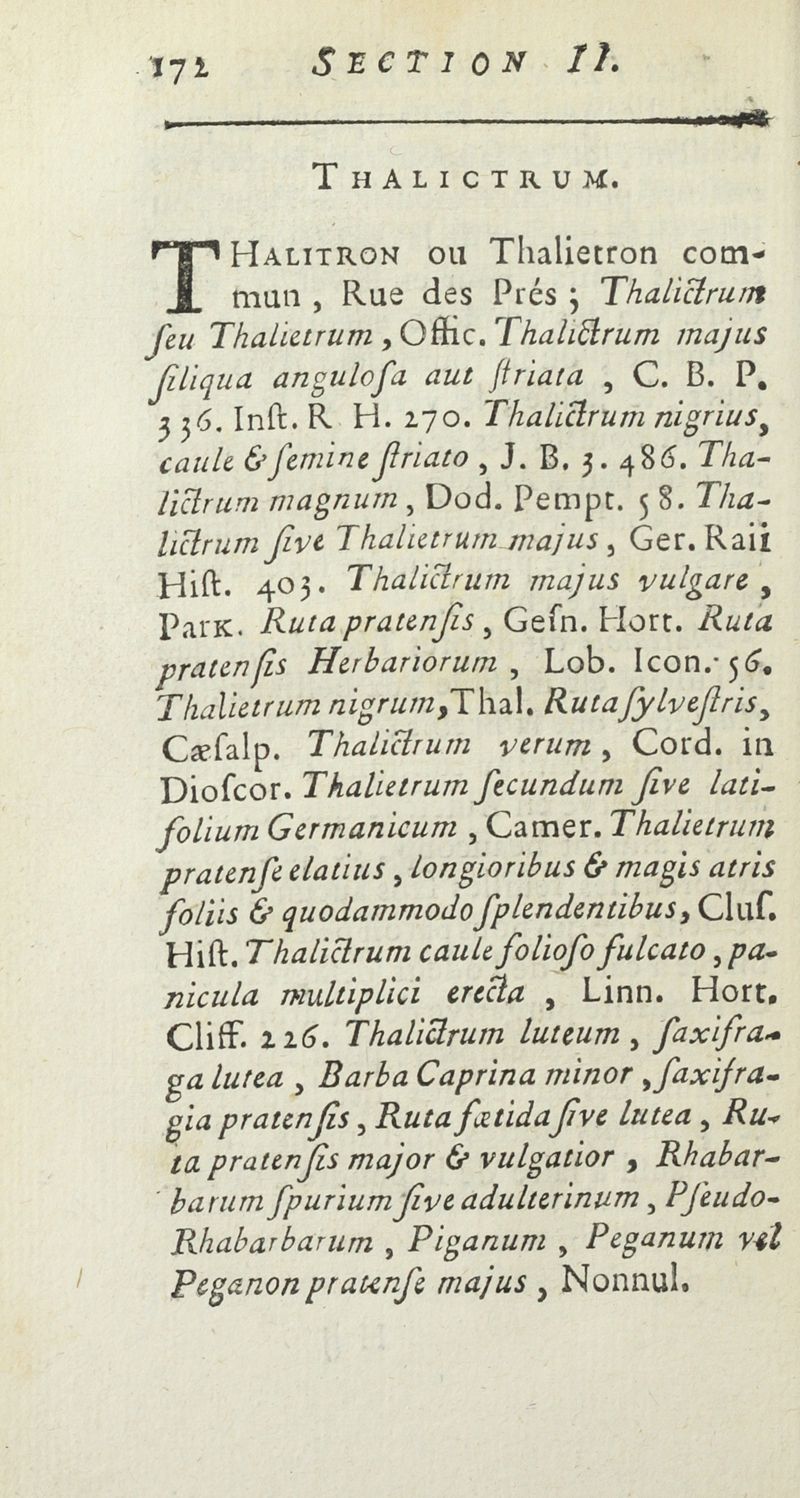 172 SECTION II.
THALICTRUM.
THALITRON ou Thalietron com-
mun, Rue des Prés; Thalictrum
ſeu Thalietrum, Offic. Thalictrum majus
ſiliqua anguloſa aut ſtriata, C. B. P.
336. Inſt. R H. 270. Thalictrum nigrius,
caule & ſemine ſtriato, J. B. 3. 486. Tha-
lictrum magnum, Dod. Pempt. 58. Tha-
lictrum ſive Thalietrum majus, Ger. Raii
Hiſt. 403. Thalictrum majus vulgare,
Park. Ruta pratenſis, Geſn. Hort. Ruta
pratenſis Herbariorum, Lob. Icon. 56.
Thalietrum nigrum, Thal. Ruta ſylveſtris,
Cæſalp. Thalictrum verum, Cord. in
Dioſcor. Thalietrum ſecundum ſive lati-
folium Germanicum, Camer. Thalietrum
pratenſe elatius, longioribus & magis atris
foliis & quodammodo ſplendentibus, Cluſ.
Hiſt. Thalictrum caule folioſo fulcato, pa-
nicula multiplici erecta, Linn. Hort.
Cliff. 226. Thalictrum luteum, ſaxifra-
ga lutea, Barba Caprina minor, ſaxifra-
gia pratenſis, Ruta fœtida ſive lutea, Ru-
ta pratenſis major & vulgatior, Rhabar-
barum ſpurium ſive adulterinum, Pſeudo-
Rhabarbarum, Piganum, Peganum vel
Peganon pratenſe majus, Nonnul.